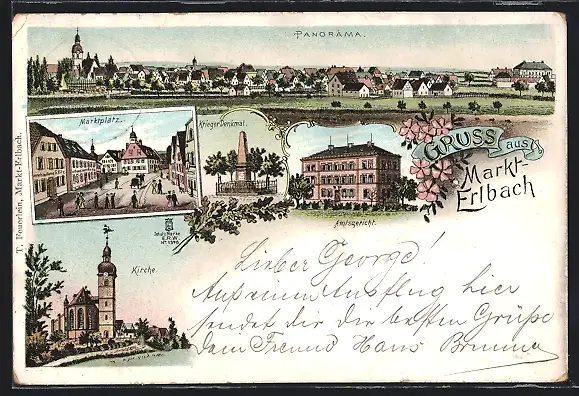 PANORAMA.
Marktplatz.
Krieger Denkmal.
GRUSS aus
Markt-
Erlbach
Amtsgericht.
Schutz Marke
E.R.W.
Kirche.
T. Feuerlein, Markt-Erlbach.
Lieber George!
Auf einem Ausflug hier
sendet dir die besten Grüße
dein Freund Hans